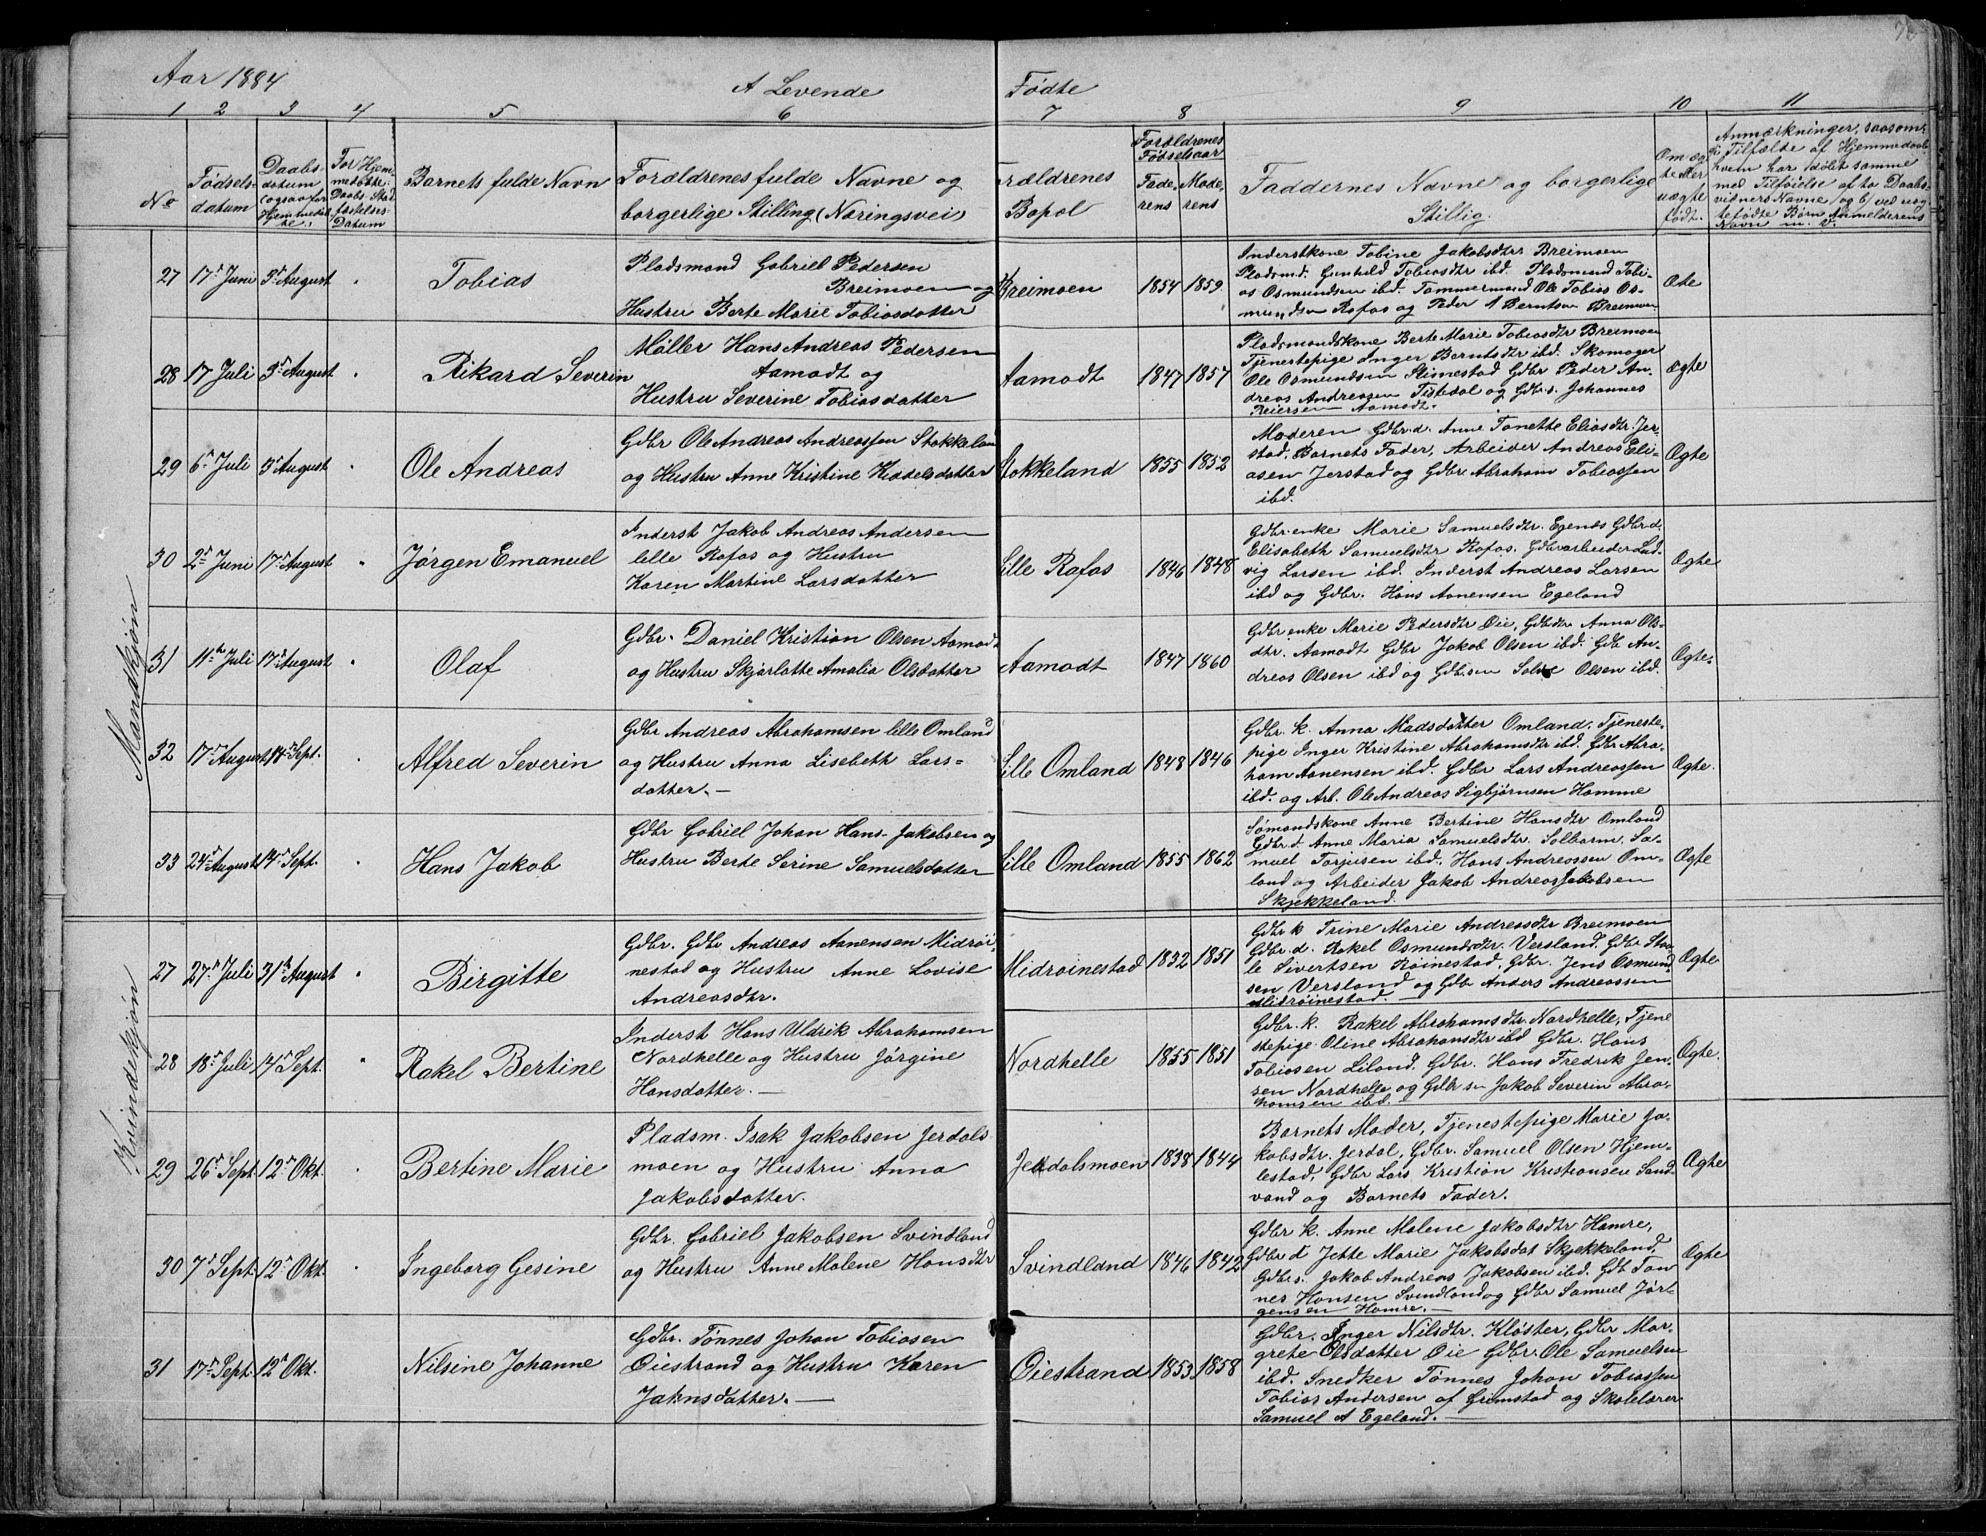 Aar 1884
A Levende Fødte
1 2 3 4 5 6 7 8 9 10 11
No
Fødsels-
datum
Daabs
datum
(ogsaa for
Hjemmedøb
te.
For Hjem
medøbte:
Daabs Stad
fæstelses
Datum
Barnets fulde Navn
Forældrenes fulde Navne og
borgerlige Stilling (Næringsvei
Forældrenes
Bopæl
Forældrenes
Fødselsaar
Fade-
rens
Mode,
rens
Faddernes Navne og borgerlige
Stillig.
Om æg
te eller
uægte
født.
Anmærkninger, saasom,
i Tilfælde af Hjemmedaab
hvem har døbt samme
med Tilføielse af to Daabs-
vidners Navne og b/ ved uæg-
tefødte Børn Anmelderens
Navn m. V.
Mandkjøn
27 17de Juni 3de August " Tobias
Pladsmand Gabriel Pedersen
Breimoen og
Hustru Berte Marie Tobiasdatter
Breimoen 1854 1859
Inderstkone Tobine Jakobsdtr Breimoen
Pladsmd. Gunhild Tobiasdtr ibd. Pladsmand Tobi-
as Osmundsen ibd. Tømmermand Ole Tobias Os-
mundsen Røfos og Peder A Berntsen Breimoen
Æte
28 17 Juli 3de August " Rikard Severin
Møller Hans Andreas Pedersen
Aamodt og
Hustru Severine Tobiasdatter
Aamodt 1847 1857
Pladsmandskone Berte Marie Tobiasdtr Breimoen
Tjenestepige Inger Berntsdtr ibd. Skomager
Ole Osmundsen Stimestad Gdbr Peder An-
dreas Andreassen Tistedal og Gdbr.s. Johannes
Reiersen Aamodt.
Ægte
29 6te Juli 3de August " Ole Andreas
Gdbr Ole Andreas Andreassen Stokkeland
og Hustru Anne Kristine Kiddelsdatter
Stokkeland 1855 1852
Moderen Gdbr.d. Anne Tonette Eliasdtr. Jer-
stad, Barnets Fader, Arbeider Andreas Eli-
asen Jerstad og Gdbr Abraham Tobiassen
ibd.
Ægte
30 2de Juni 17de August " Jørgen Emanuel
Inderst Jakob Andreas Andersen
lille Røfos og Hustru
Karen Martine Larsdatter
Lille Røfos 1846 1848
Gdbr.enke Marie Samuelsdtr. Egenæs Gdbr.d.
Elisabeth Samuelsdtr Røfos. Gdbr.arbeider Lud-
vig Larsen ibd. Inderst Andreas Larsen
ibd og Gdbr. Hans Aanensen Egeland
Ægte
31 11te Juli 17de August " Olaf
Gdbr. Daniel Kristian Olsen Aamodt
og Hustru Skjarlotte Amalia Olsdatter
Aamodt 1847 1860
Gdbr.enke Marie Pedersdtr Øie, Gdbrdtr Anna Ols-
dtr. Aamodt Gdbr Jakob Olsen ibd. Gdb An-
dreas Olsen ibd og Gdbr.sen Salve Olsen ibd.
Ægte.
32 17de August 14de Sept. " Alfred Severin
Gdbr Andreas Abrahamsen lille Omland
og Hustru Anna Lisebeth Lars-
datter.—
Lille Omland 1848 1846
Gdbr. k. Anna Madsdatter Omland, Tjeneste-
pige Inger Kristine Abrahamsdtr ibd. Gdbr Abra-
ham Aanensen ibd. Gdbr Lars Andreassen
ibd. og Arb. Ole Andreas Sigbjørnsen Homme
Ægte.
33 24de August 14de Sept. " Hans Jakob
Gdbr Gabriel Johan Hans-Jakobsen og
Hustru Berte Serine Samuelsdatter
Lille Omland 1855 1862
Sømandskone Anne Bertine Hansdtr Omland
Gdbr.d Anne Maria Samuelsdtr. Solbarm, Sa-
muel Torjusen ibd. Hans Andreassen Om-
land og Arbeider Jakob Andreas Jakobsen
Skjekkeland.
Ægte
Kvindekjøn
27 27de Juli 31te August " Birgitte
Gdbr. Gdbr Andreas Aanensen Midrøi-
nestad og Hustru Anne Lovise
Andreasdtr.
Midrøinestad 1852 1851
Gdbr k Trine Marie Andreasdtr Breimoen
Gdbr. d. Rakel Osmundsdtr. Versland. Gdbr Sto-
le Sivertsen Røinestad, Gdbr. Jens Osmund-
sen Versland og Gdbr Anders Andreassen
Midrøinestad.—
Ægte
28 18de Juli 14de Sept. " Rakel Bertine
Inderst Hans Uldrik Abrahamsen
Nordhelle og Hustru Jørgine
Hansdatter.—
Nordhelle 1855 1851
Gdbr. k. Rakel Abrahamsdtr Nordhelle, Tjene
stepige Oline Abrahamsdtr ibd Gdbr. Hans
Tobiasen Liland. Gdbr. Hans Fredrik Jen-
sen Nordhelle og Gdbr sn Jakob Severin Abra-
hamsen ibd.
Ægte.
29 26de Sept. 12te Okt. Bertine Marie
Pladsm. Isak Jakobsen Jerdals
moen og Hustru Anna
Jakobsdatter.
Jerdalsmoen 1838 1844
Barnets Moder, Tjenestepige Marie Ja-
kobsdtr. Jerdal, Gdbr. Samuel Olsen Hjem-
lestad, Gdbr Lars Kristian Kristiansen Sand-
vand og Barnets Fader.
Ægte
30 7de Sept. 12te Okt. " Ingeborg Gesine
Gdbr. Gabriel Jakobsen Svindland
og Hustru Anne Malene Hansdtr
Svindland 1846 1842
Gdbr k. Anne Malene Jakobsdtr Hamre,
Gdbr d Jette Marie Jakobsdat Skjekkeland
Gdbr s. Jakob Andreas Jakobsen ibd. Gdb Tøn-
nes Hansen Svindland og Gdbr Samuel Jør-
gensen Hamre.—
Ægte
31 17de Sept. 12te Okt. Nilsine Johanne
Gdbr. Tønnes Johan Tobiasen
Øiestrand og Hustru Karen
Jahnsdatter.—
Øiestrand 1853 1858
Gdbr. Inger Nilsdtr. Kloster, Gdbr Mar-
grete Olsdatter Øie Gdbr. Ole Samuelsen
ibd. Snedker Tønnes Johan Tobiassen
Tobias Andersen af Grimstad og Skolelærer
Samuel A Egeland.—